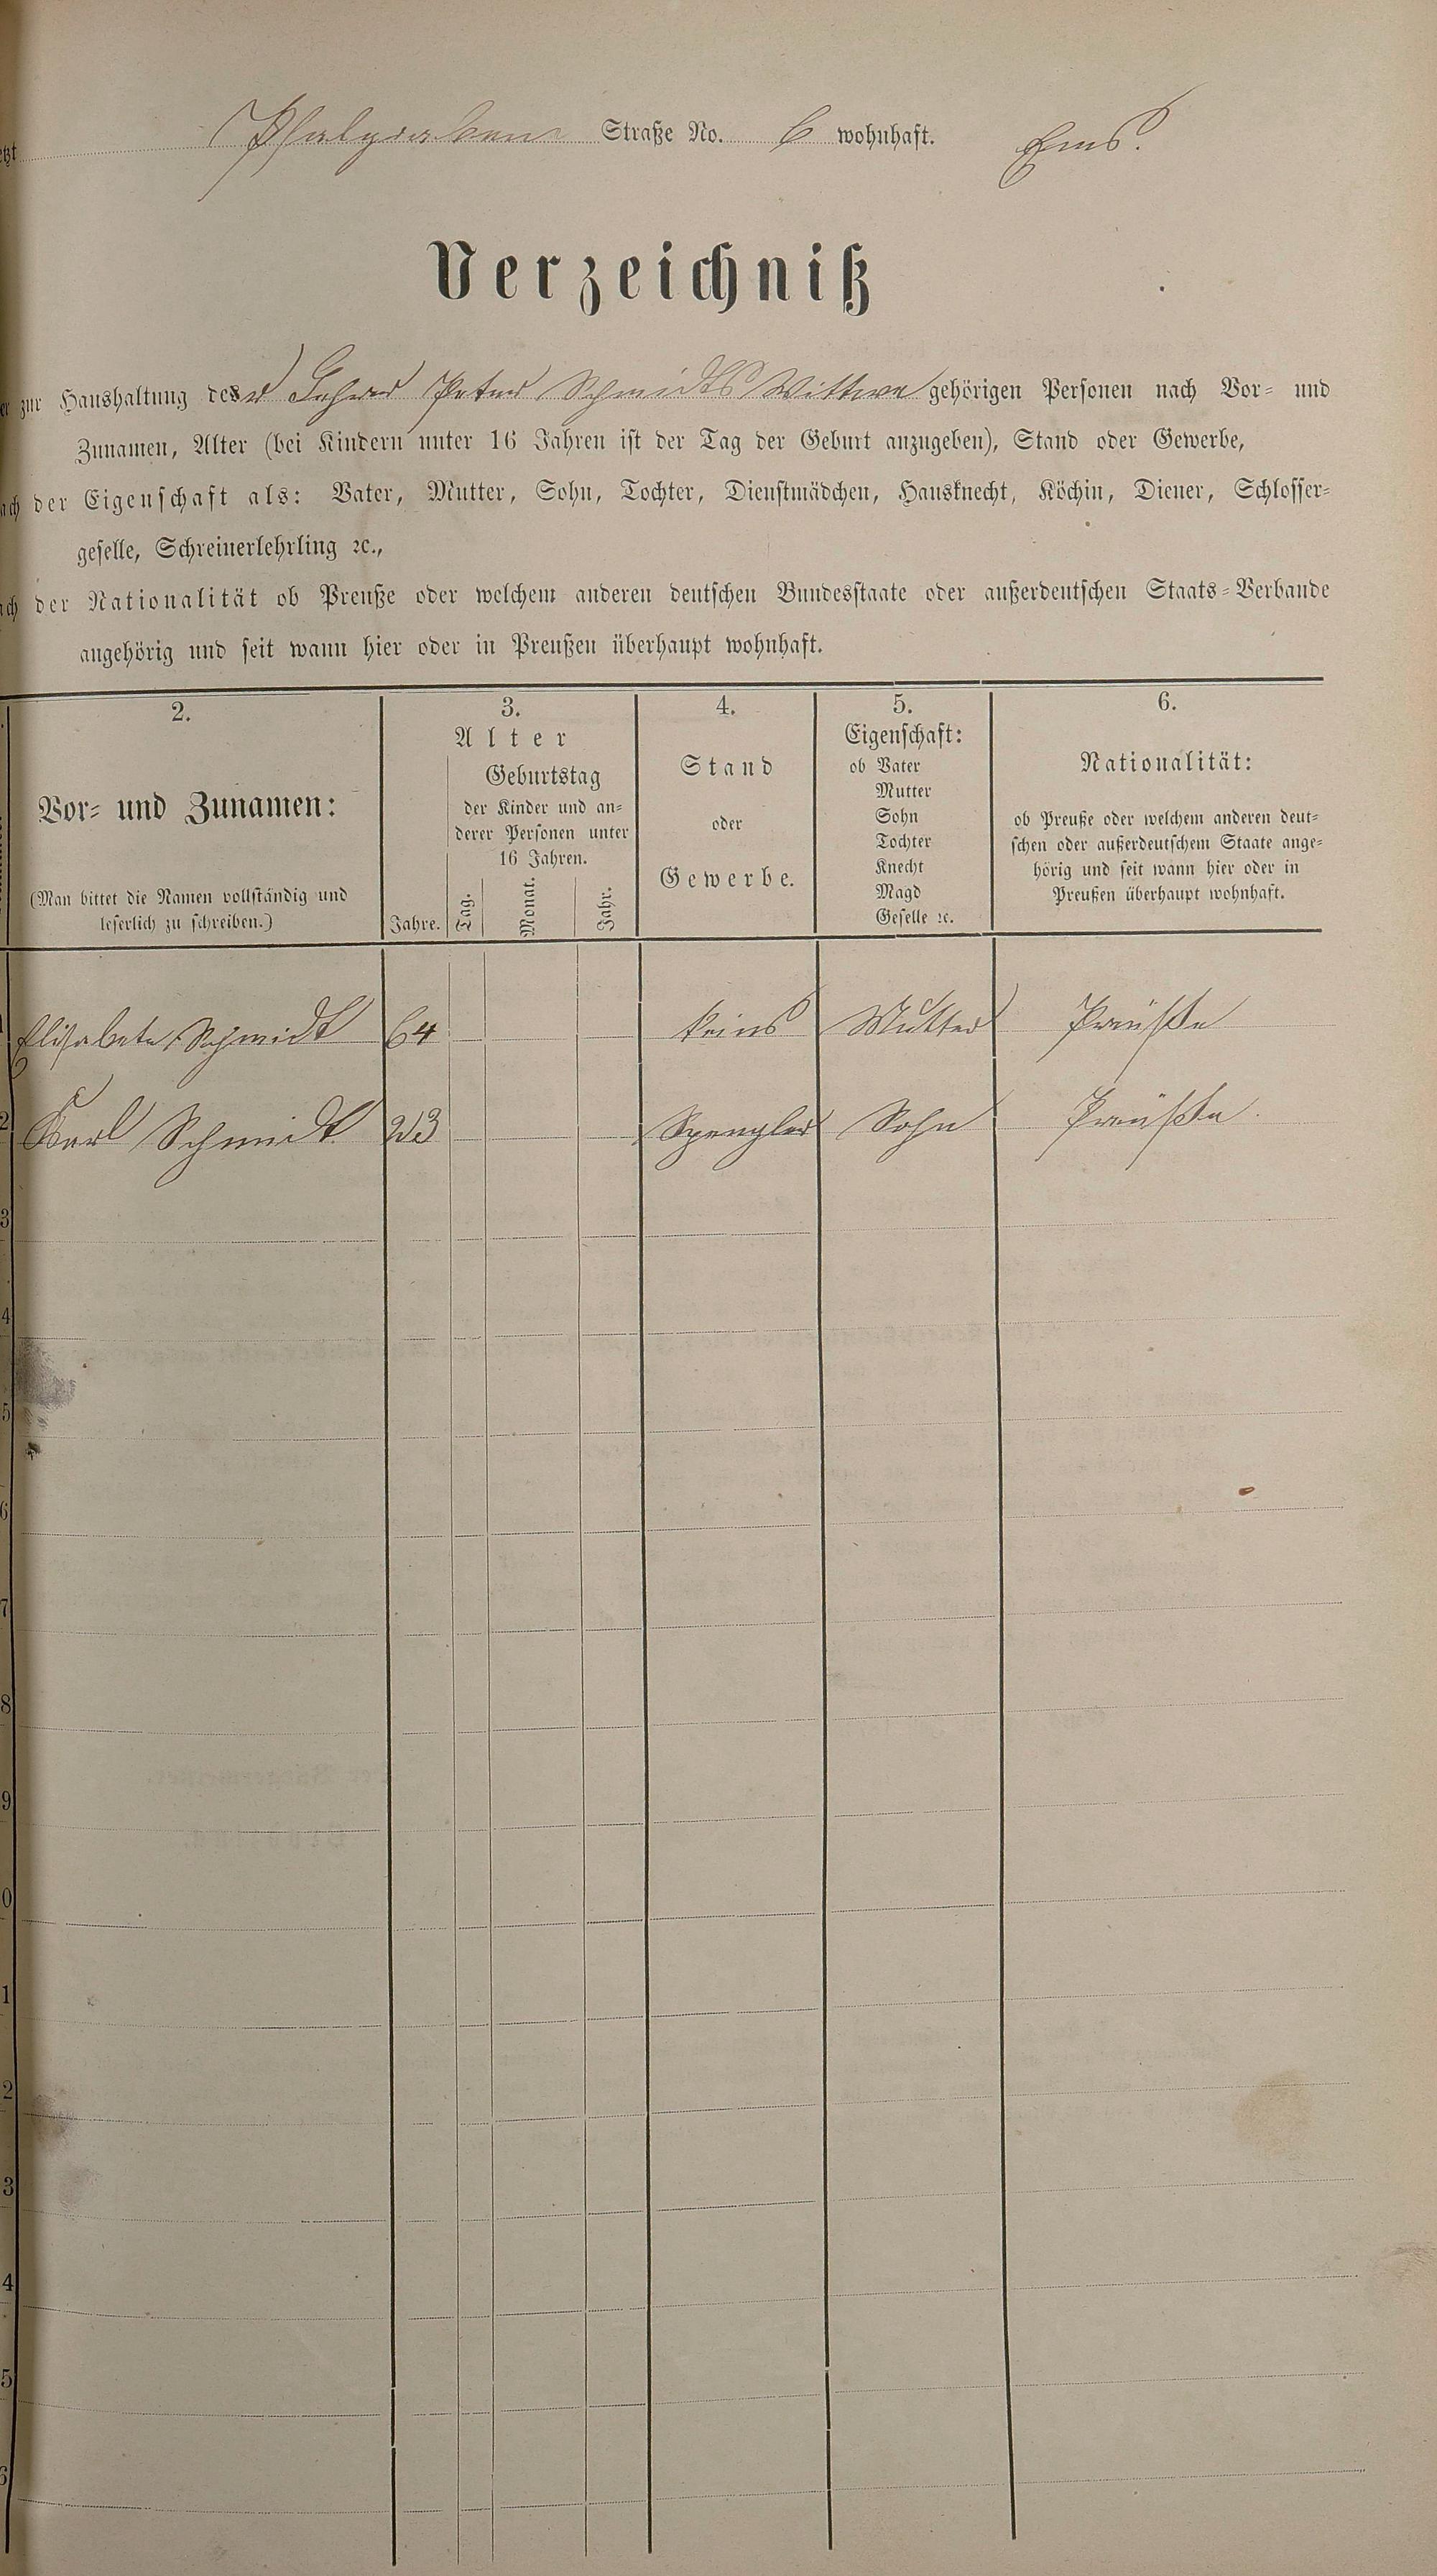 Pfalgraben Straße No. 6 wohnhaft. Ems.
Verzeichniß
zur Haushaltung des r Lehrer Peter Schmidts Wittwe gehörigen Personen nach Vor- und
Zunamen, Alter (bei Kindern unter 16 Jahren ist der Tag der Geburt anzugeben), Stand oder Gewerbe,
der Eigenschaft als: Vater, Mutter, Sohn, Tochter, Dienstmädchen, Hausknecht, Köchin, Diener, Schlosser-
geselle, Schreinerlehrling ꝛc.,
der Nationalität ob Preuße oder welchem anderen deutschen Bundesstaate oder außerdeutschen Staats-Verbande
angehörig und seit wann hier oder in Preußen überhaupt wohnhaft.
2. 3. 4. 5. 6.
Vor- und Zunamen:
(Man bittet die Namen vollständig und
leserlich zu schreiben.)
Alter
Geburtstag
der Kinder und an-
derer Personen unter
16 Jahren.
Jahre. Tag. Monat. Jahr.
Stand
oder
Gewerbe.
Eigenschaft:
ob Vater
Mutter
Sohn
Tochter
Knecht
Magd
Geselle ꝛc.
Nationalität:
ob Preuße oder welchem anderen deut-
schen oder außerdeutschem Staate ange-
hörig und seit wann hier oder in
Preußen überhaupt wohnhaft.
Elisabete Schmidt 64 keins Mutter Preuße
2 Karl Schmidt 23 Spengler Sohn Preuße
3
4
5
6
7
8
9
0
1
2
3
4
5
6